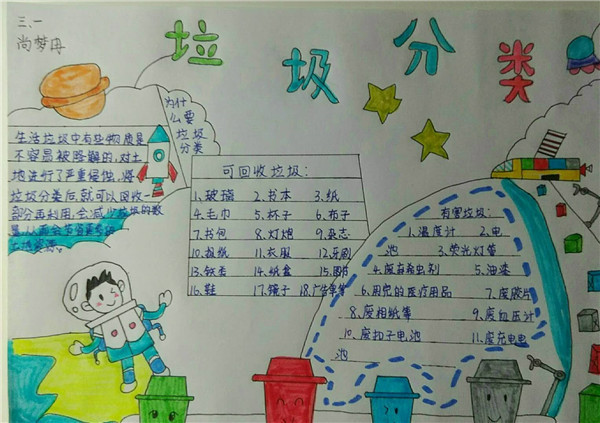 三、一
尚梦冉
垃圾分类
为什
么要
垃圾
分类
生活垃圾中有些物质是
不容易被降解的,对土
地进行了严重侵蚀,将
垃圾分类后,就可以回收一
部分再利用,会减少垃圾的数
可回收垃圾:
1.玻璃 2.书本 3.纸
4.毛巾 5.杯子 6.布子
7.书包 8.灯炮 9.杂志
10.报纸 11.衣服 12.牙刷
13.铁类 14.纸盒 15.
16.鞋 17.镜子 18.广告单
有害垃圾:
1.温度计 2.电
池 3.荧光灯管
4.废杀虫剂 5.油漆
6.用完的医疗用品 7.废胶片
8.废相纸等 9.废血压计
10.废扣子电池 11.废充电电
池